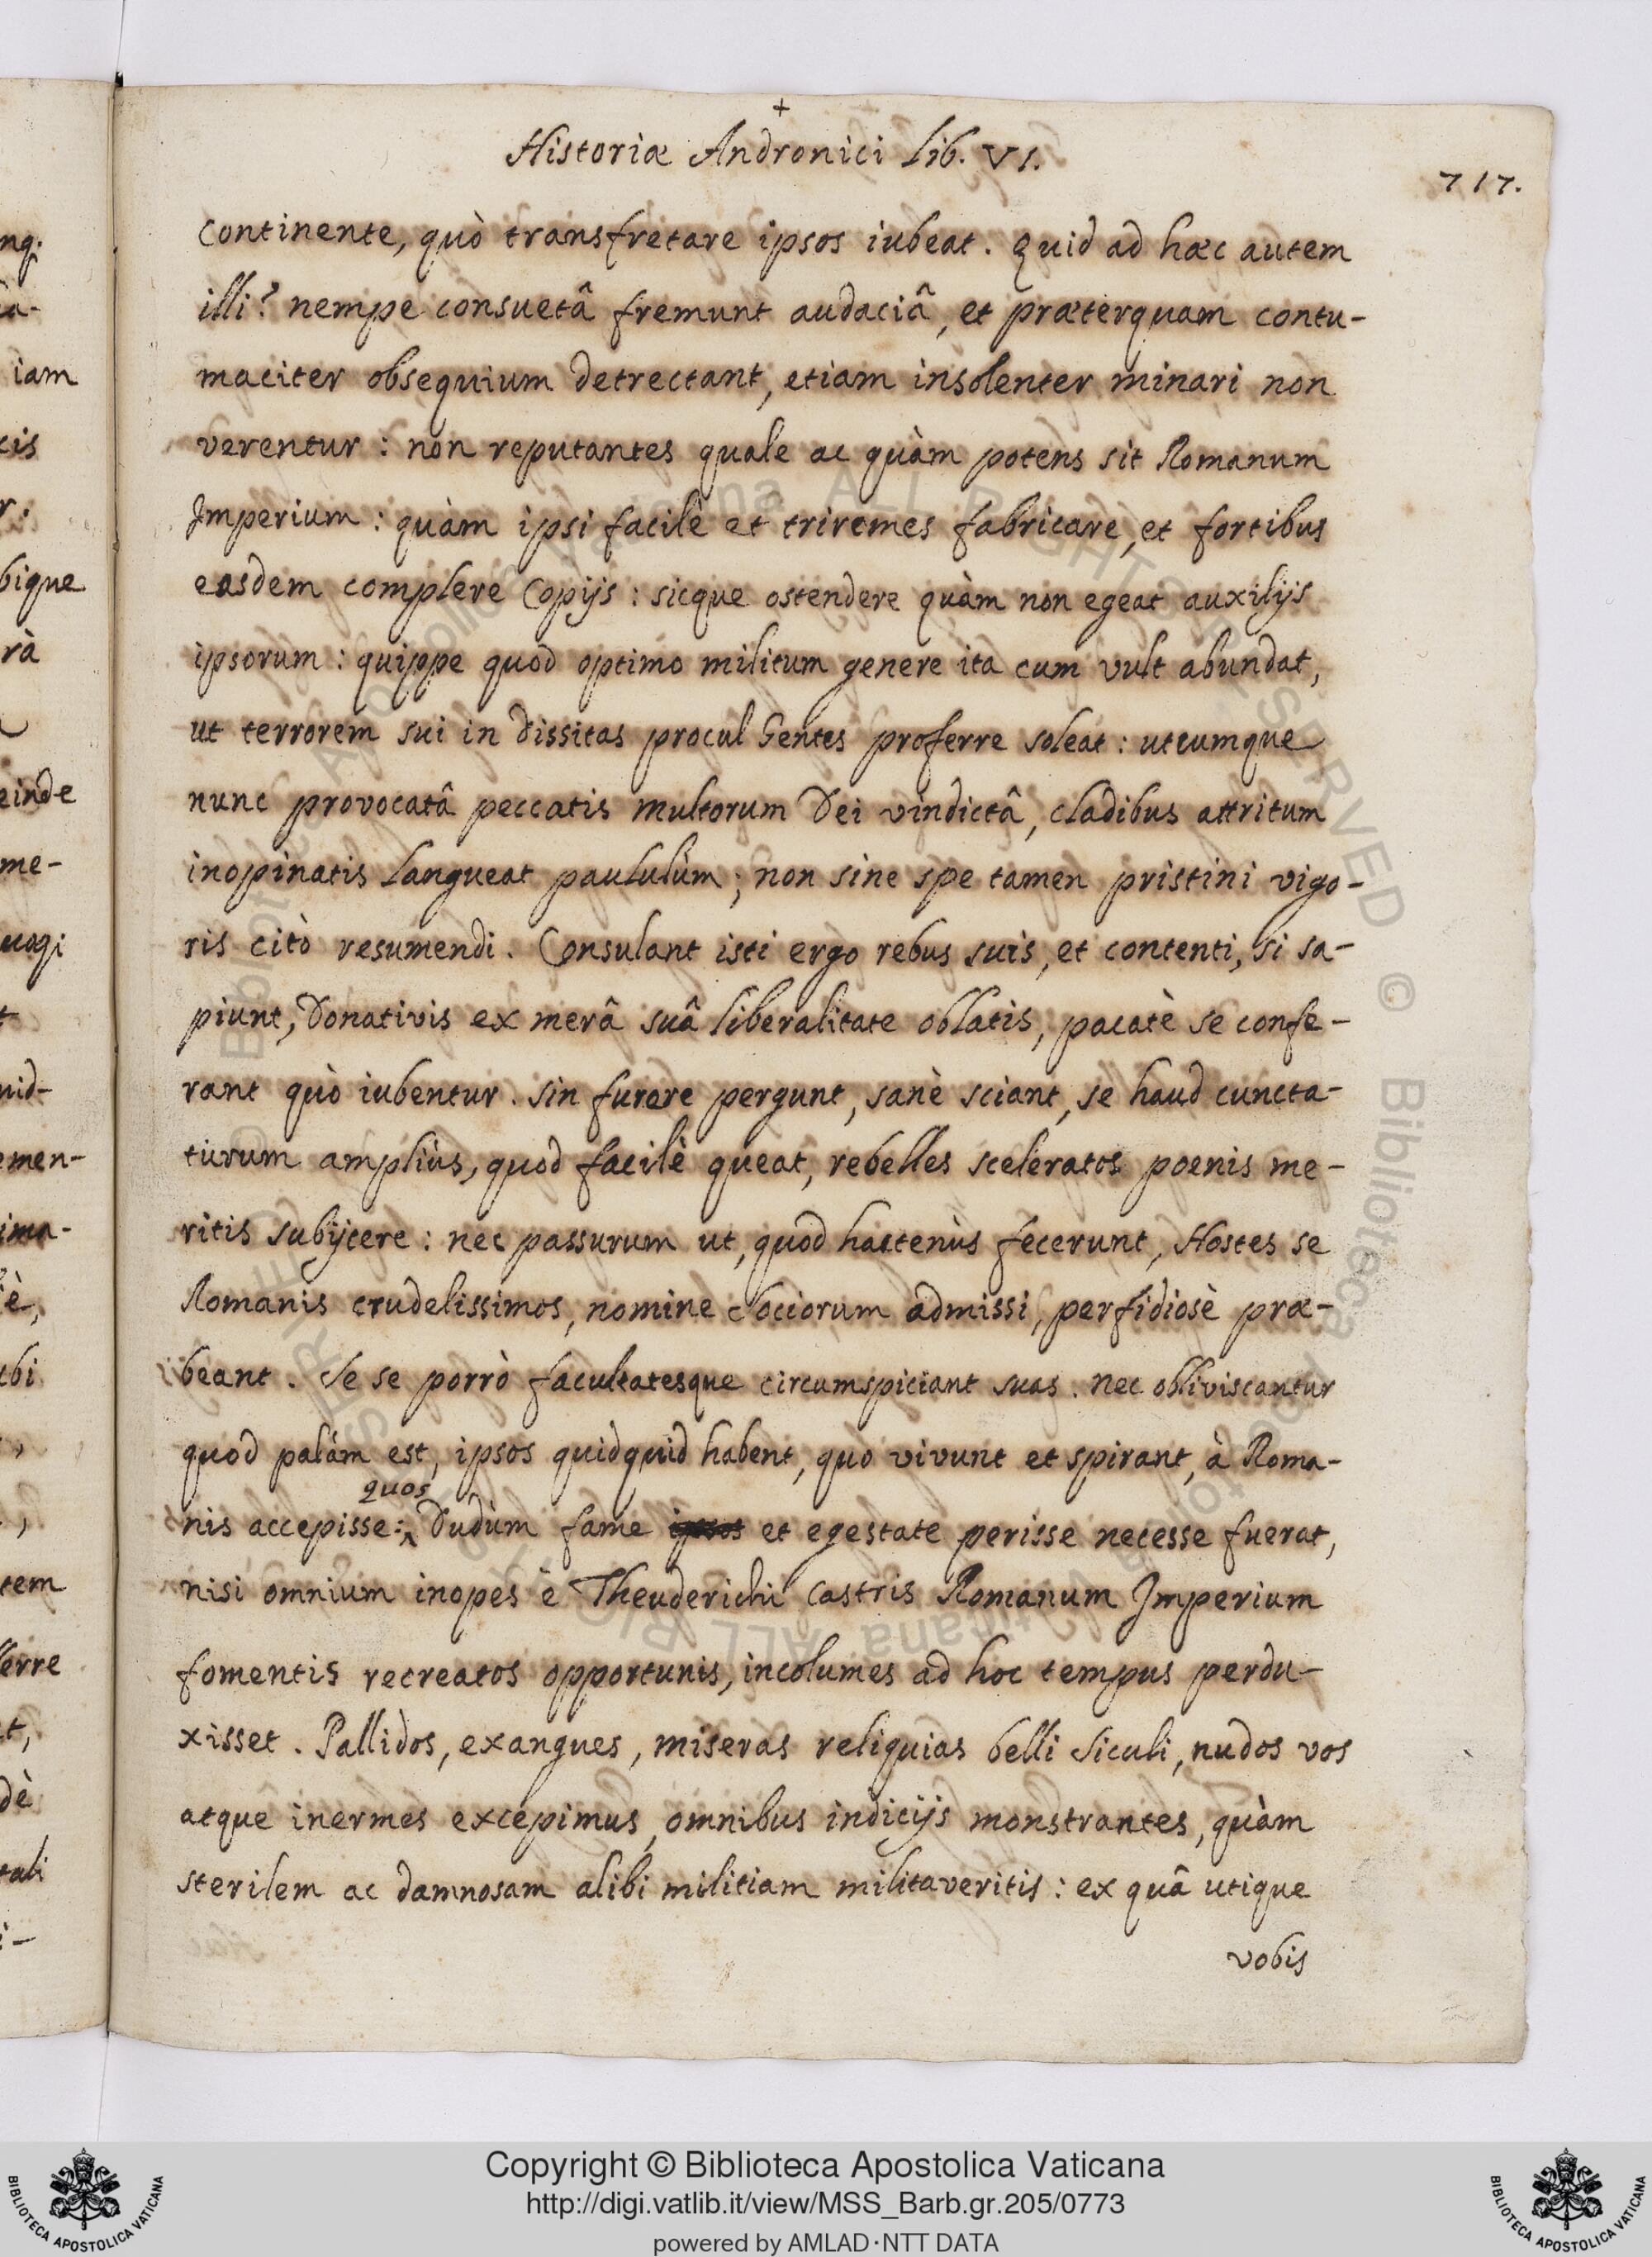 +
Historiæ Andronici Lib. VI.
717.
continente, quò transfretare ipsos iubeat. Quid ad hæc autem
illi? nempe consuetâ fremunt audaciâ, et præterquam contu-
maciter obsequium detrectant, etiam insolenter minari non
verentur: non reputantes quale ac quàm potens sit Romanum
Imperium: quàm ipsi facilè et triremes fabricare, et fortibus
easdem complere Copijs: sicque ostendere quàm non egeat auxilijs
ipsorum: quippe quod optimo militum genere ita cum vult abundat,
ut terrorem sui in dissitas procul Gentes proferre soleat: utcumque
nunc provocatâ peccatis multorum Dei vindictâ, cladibus attritum
inopinatis Langueat paululùm; non sine spe tamen pristini vigo-
ris citò resumendi. Consulant isti ergo rebus suis, et contenti, si sa-
piunt, Donativis ex merâ suâ liberalitate oblatis, pacatè se confe-
rant quò iubentur. sin furere pergunt, sanè sciant, se haud cuncta-
turum ampliùs, quod facilè queat, rebelles sceleratos poenis me-
ritis subijcere: nec passurum ut, quod hactenùs fecerunt, Hostes se
Romanis crudelissimos, nomine Sociorum admissi, perfidiosè præ-
beant. Se se porrò facultatesque circumspiciant suas. nec obliviscantur
quod palàm est, ipsos quidquid habent, quo vivunt et spirant, à Roma-
quos
nis accepisse:‸ Dudùm fame ipsos et egestate perisse necesse fuerat,
nisi omnium inopes è Theuderichi castris Romanum Imperium
fomentis recreatos opportunis, incolumes ad hoc tempus perdu-
xisset. Pallidos, exangues, miseras reliquias belli Siculi, nudos vos
atque inermes excepimus, omnibus indicijs monstrantes, quàm
sterilem ac damnosam alibi militiam militaveritis: ex quâ utique
vobis
Copyright © Biblioteca Apostolica Vaticana
http://digi.vatlib.it/view/MSS_Barb.gr.205/0773
powered by AMLAD·NTT DATA
BIBLIOTECA APOSTOLICA VATICANA
BIBLIOTECA APOSTOLICA VATICANA